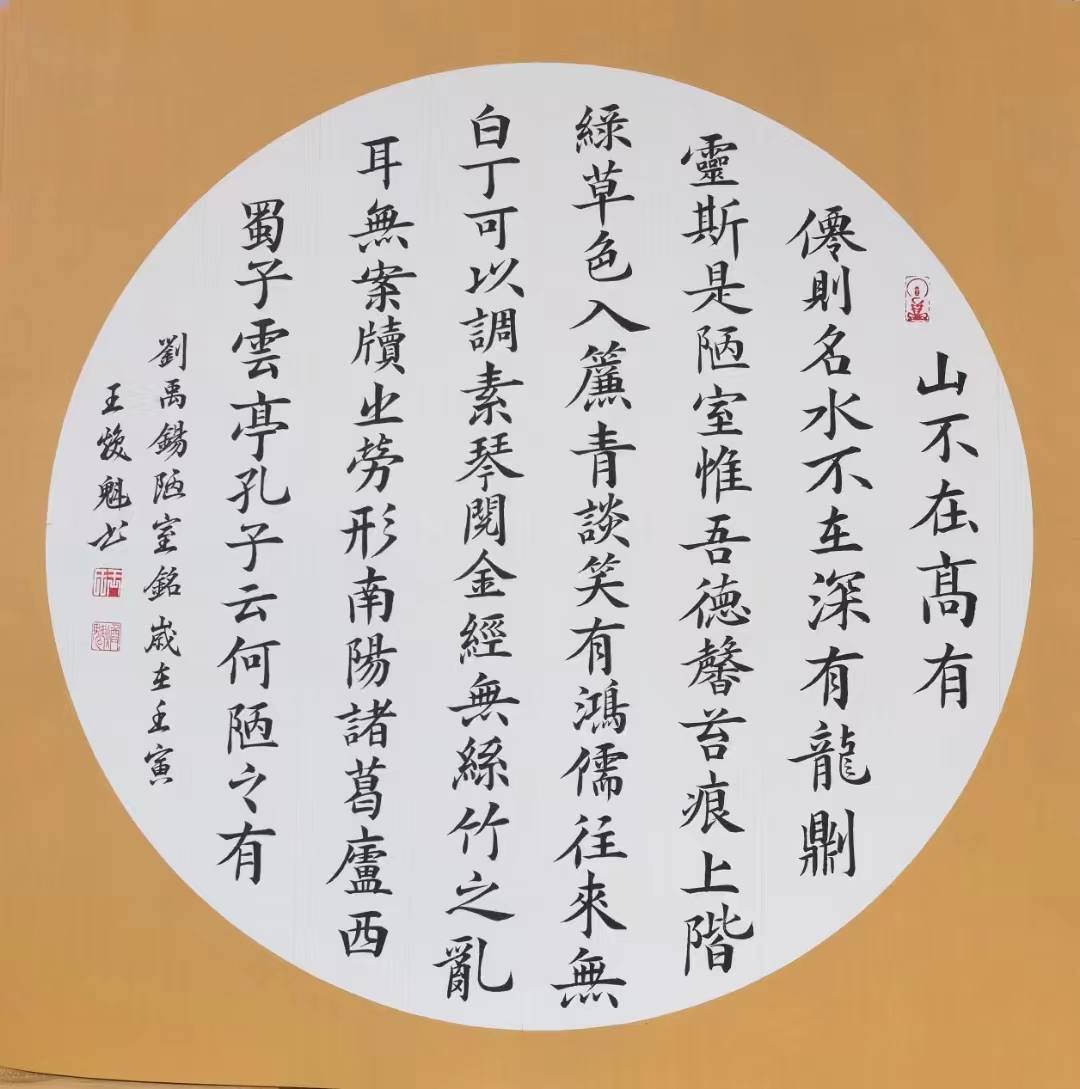 山不在髙有
僊則名水不在深有龍則
靈斯是陋室惟吾德馨苔痕上階
綠草色入簾青談笑有鴻儒往來無
白丁可以調素琴閱金經無絲竹之亂
耳無案牘之勞形南陽諸葛廬西
蜀子雲亭孔子云何陋之有
劉禹錫陋室銘歲在壬寅
王煥魁书